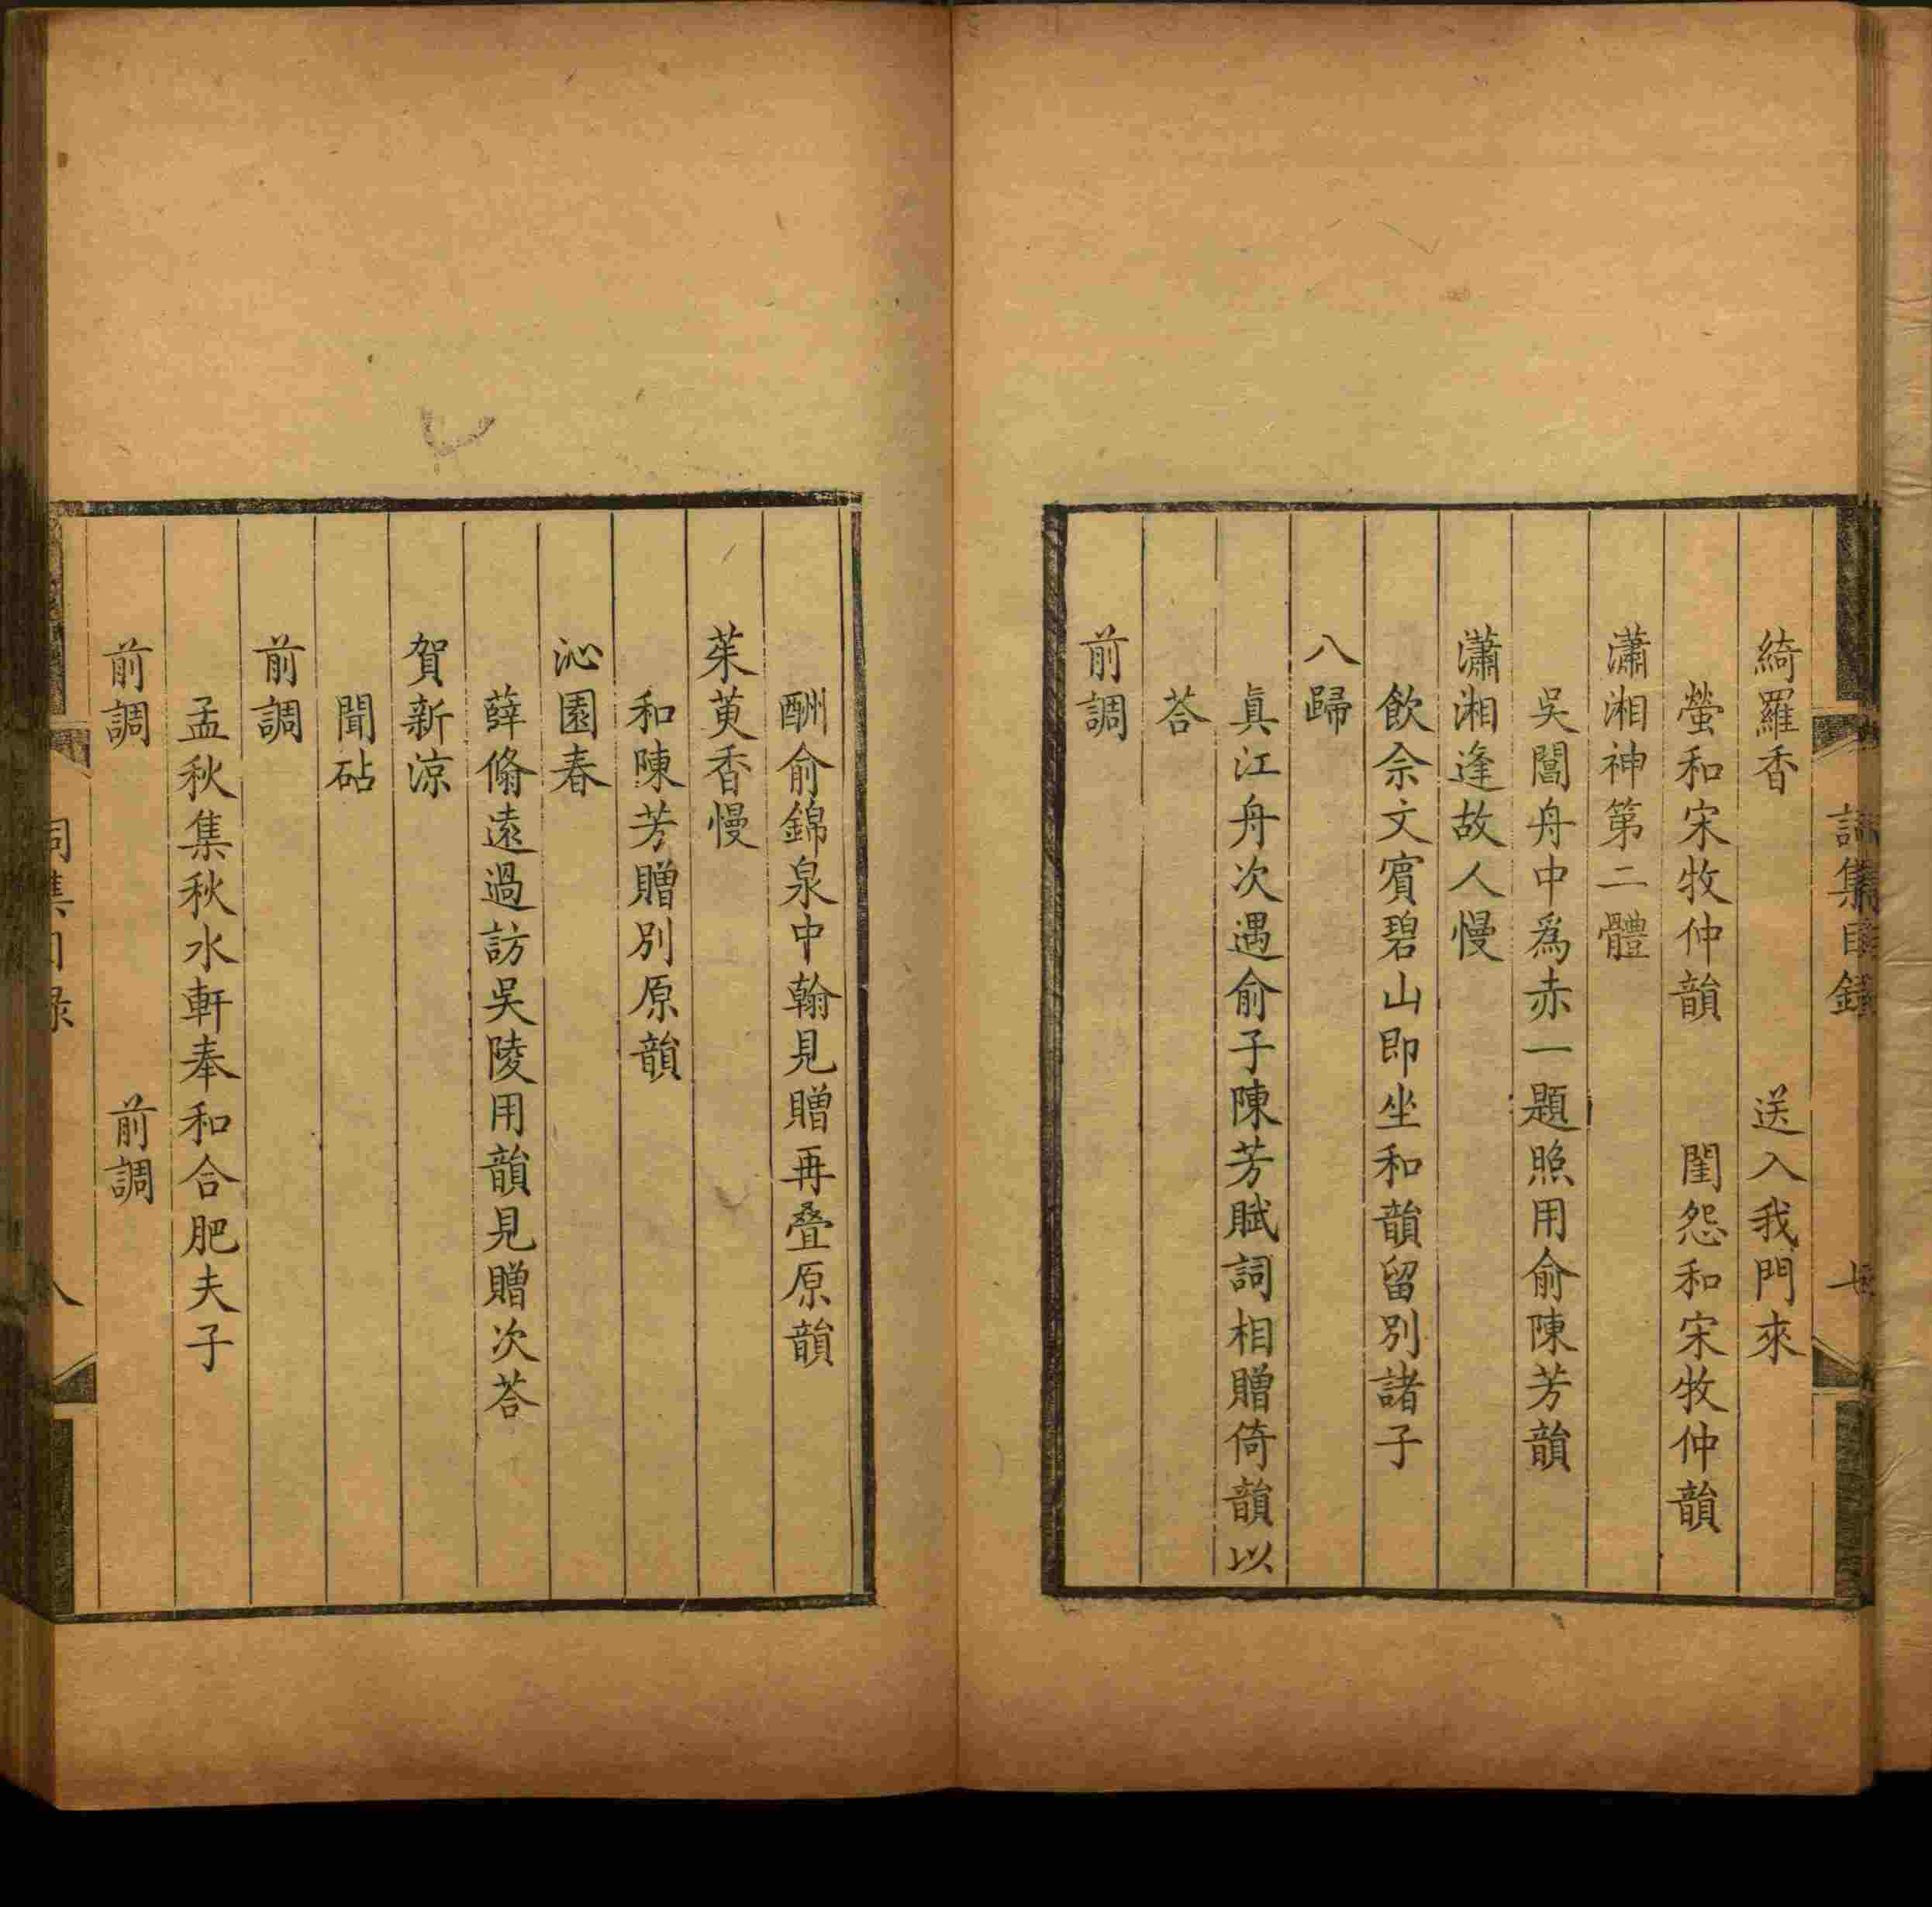 詞集目錄　七
綺羅香　送入我門來
螢和宋牧仲韻　閨怨和宋牧仲韻
瀟湘神第二體
吳閶舟中爲赤一題照用俞陳芳韻
瀟湘逢故人慢
飲佘文賓碧山即坐和韻留別諸子
八歸
眞江舟次遇俞子陳芳賦詞相贈倚韻以
荅
前調
酬俞錦泉中翰見贈再叠原韻
茱萸香慢
和陳芳贈別原韻
沁園春
薛脩遠過訪吳陵用韻見贈次荅
賀新涼
聞砧
前調
孟秋集秋水軒奉和合肥夫子
前調　前調
詞集目錄　八